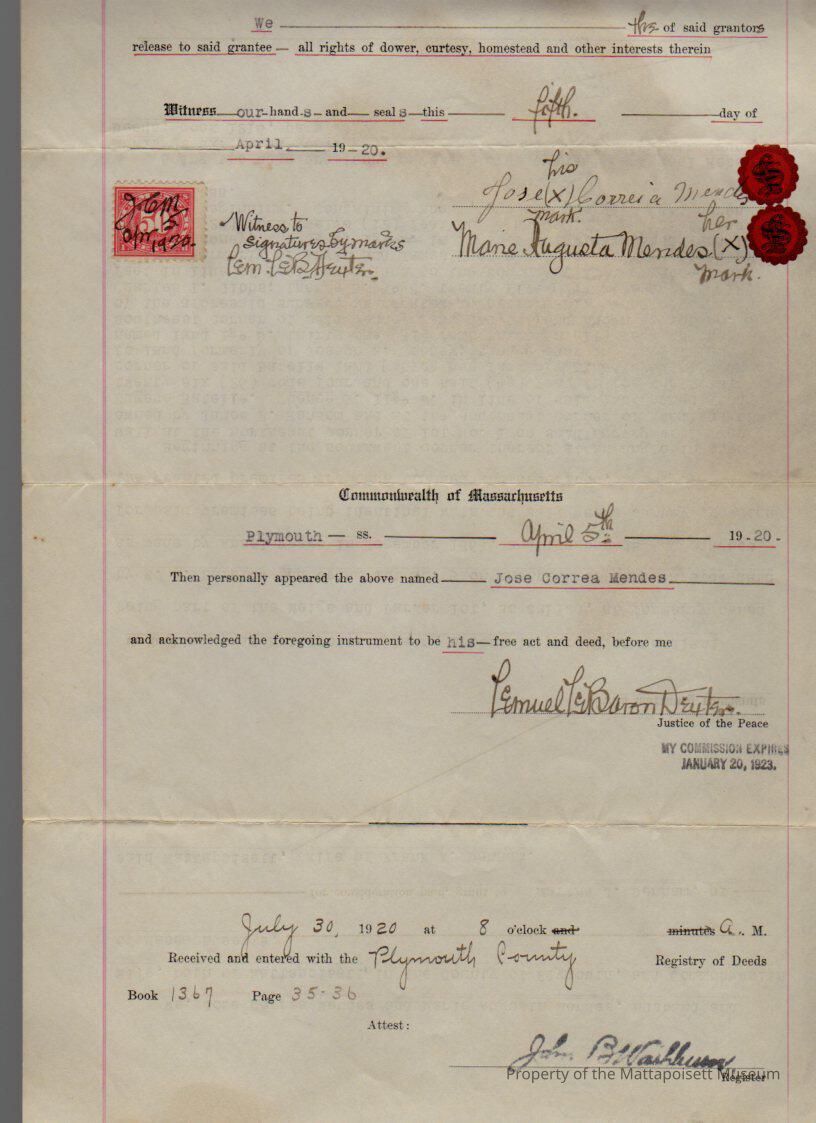 We the of said grantors
release to said grantee — all rights of dower, curtesy, homestead and other interests therein
Witness our hand s and seal s this fifth. day of
April 19 20.
his
Jose (X) Correia Mendes
mark.
her
Marie Augusta Mendes (X)
mark.
J.C.M.
Apr. 5
1920.
Witness to
signatures by marks
Lem. LeB. Dexter.
Commonwealth of Massachusetts
Plymouth — ss. April 5th 19-20.
Then personally appeared the above named Jose Correa Mendes
and acknowledged the foregoing instrument to be his free act and deed, before me
Lemuel LeBaron Dexter.
Justice of the Peace
MY COMMISSION EXPIRES
JANUARY 20, 1923.
July 30, 1920 at 8 o'clock and minutes A. M.
Received and entered with the Plymouth County Registry of Deeds
Book 1367 Page 35-36
Attest:
John B Washburn
Register
Property of the Mattapoisett Museum